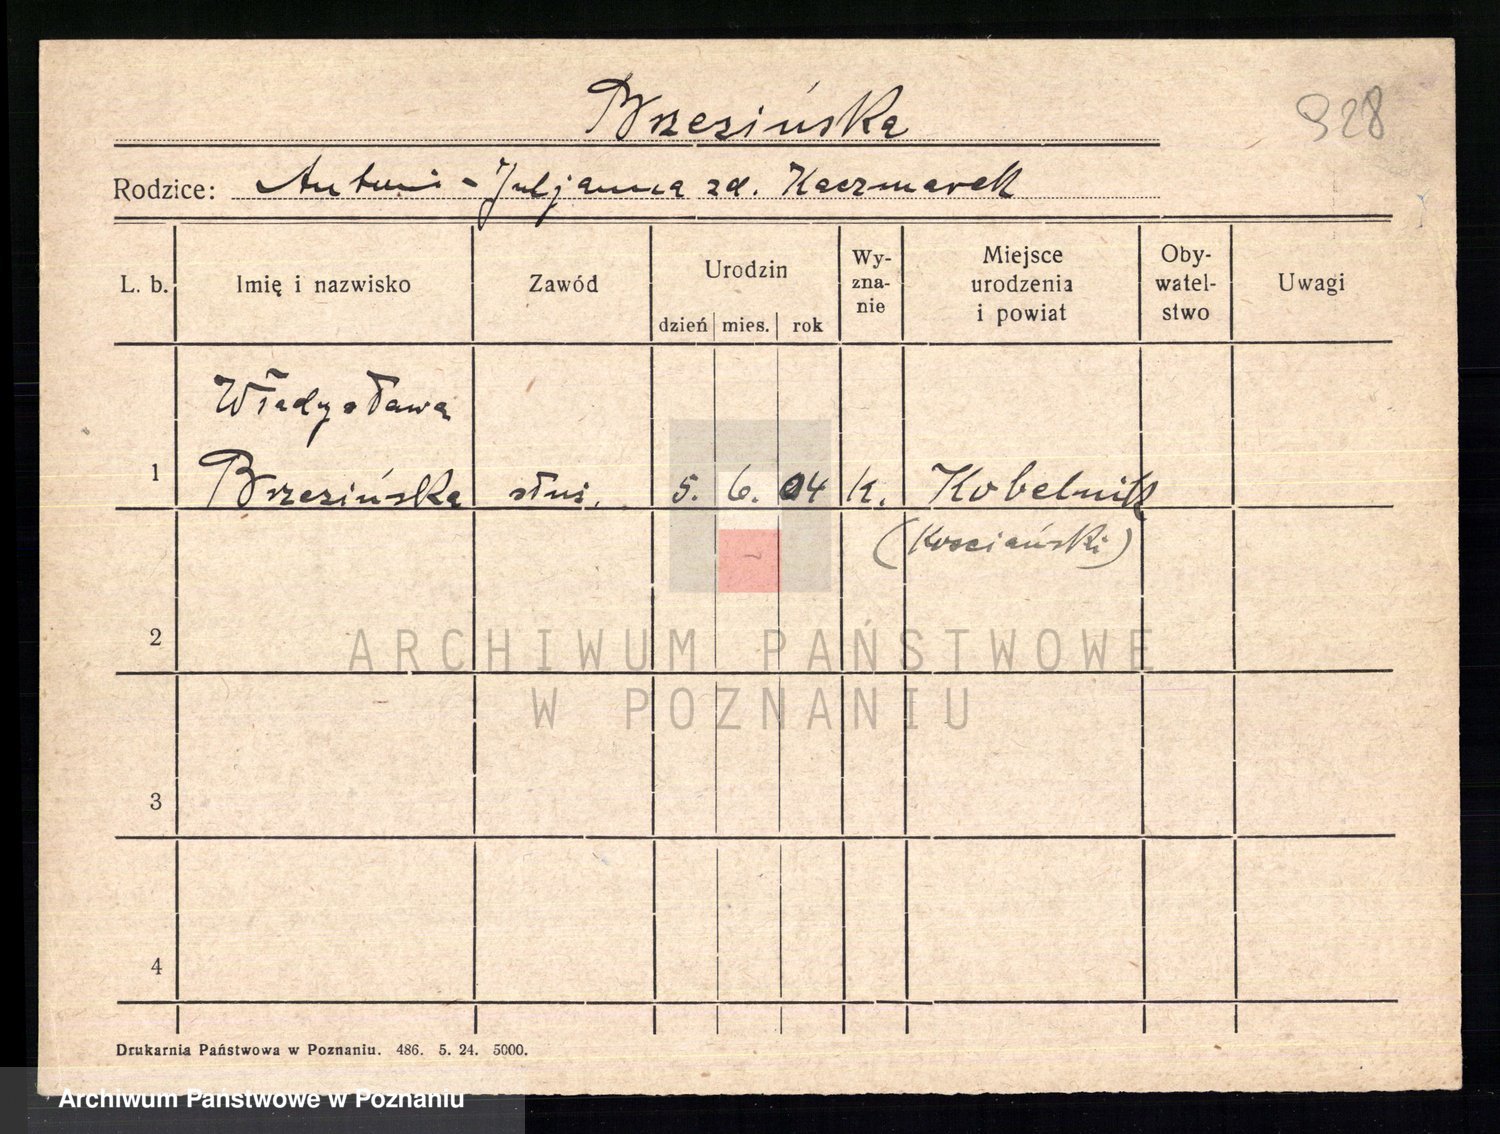 Brzezińska
928
Rodzice: Antoni - Juljanna zd. Kaczmarek
L. b.
Imię i nazwisko
Zawód
Urodzin
dzień mies. rok
Wy-
zna-
nie
Miejsce
urodzenia
i powiat
Oby-
watel-
stwo
Uwagi
Władysława
1 Brzezińska służ. 5. 6. 04 k. Kobelniki
(Kościański)
2
ARCHIWUM PAŃSTWOWE
W POZNANIU
3
4
Drukarnia Państwowa w Poznaniu. 486. 5. 24. 5000.
Archiwum Państwowe w Poznaniu